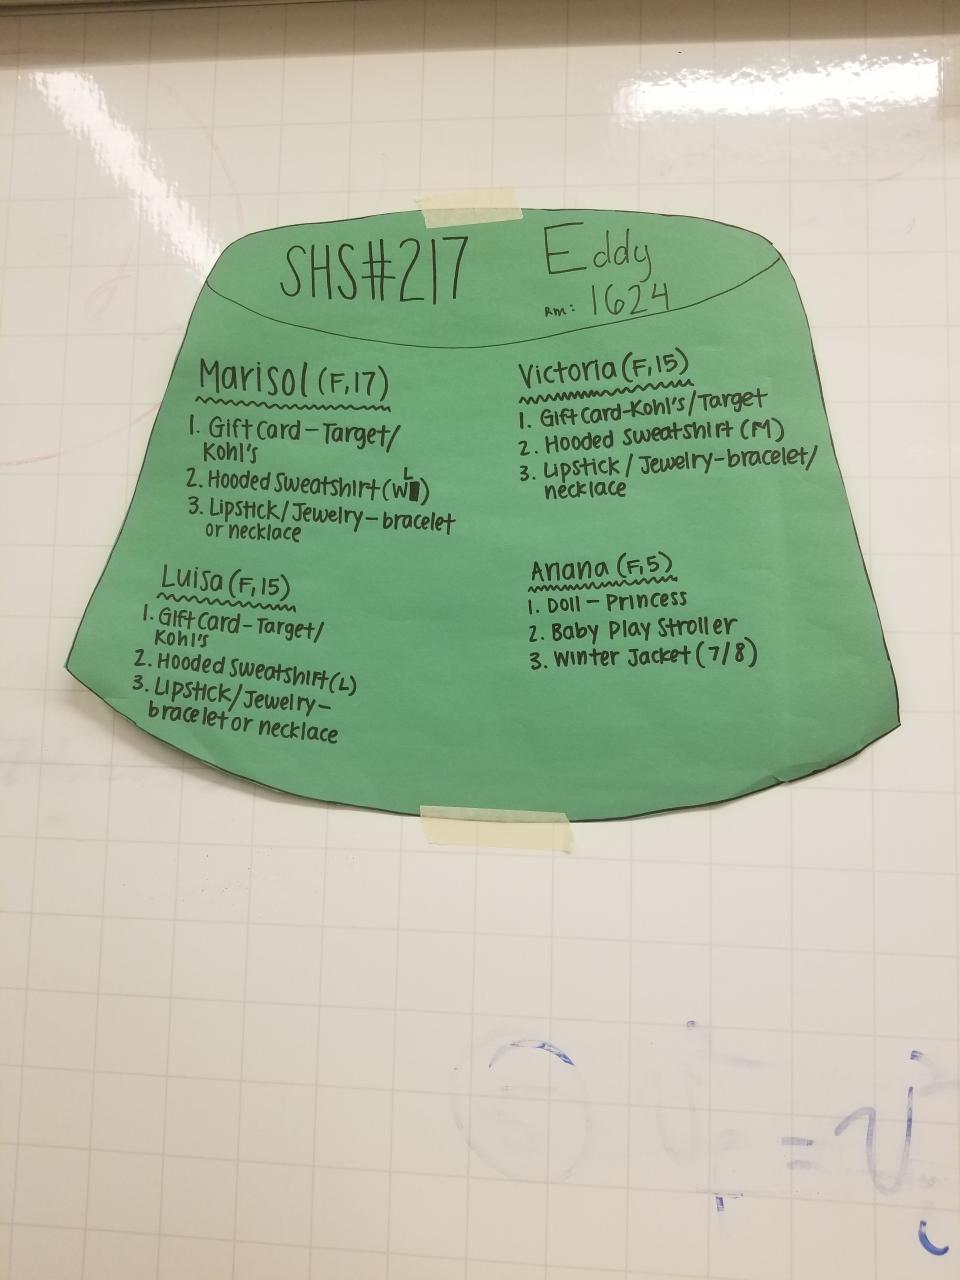 SHS#217
Eddy
RM: 1624
Marisol (F,17)
1. Gift Card - Target/
Kohl's
2. Hooded Sweatshirt (W L)
3. Lipstick/Jewelry - bracelet
or necklace
Luisa (F,15)
1. Gift Card - Target/
Kohl's
2. Hooded Sweatshirt (L)
3. Lipstick/Jewelry -
bracelet or necklace
Victoria (F,15)
1. Gift Card - Kohl's/Target
2. Hooded Sweatshirt (M)
3. Lipstick/Jewelry - bracelet/
necklace
Anana (F,5)
1. Doll - Princess
2. Baby Play Stroller
3. Winter Jacket (7/8)